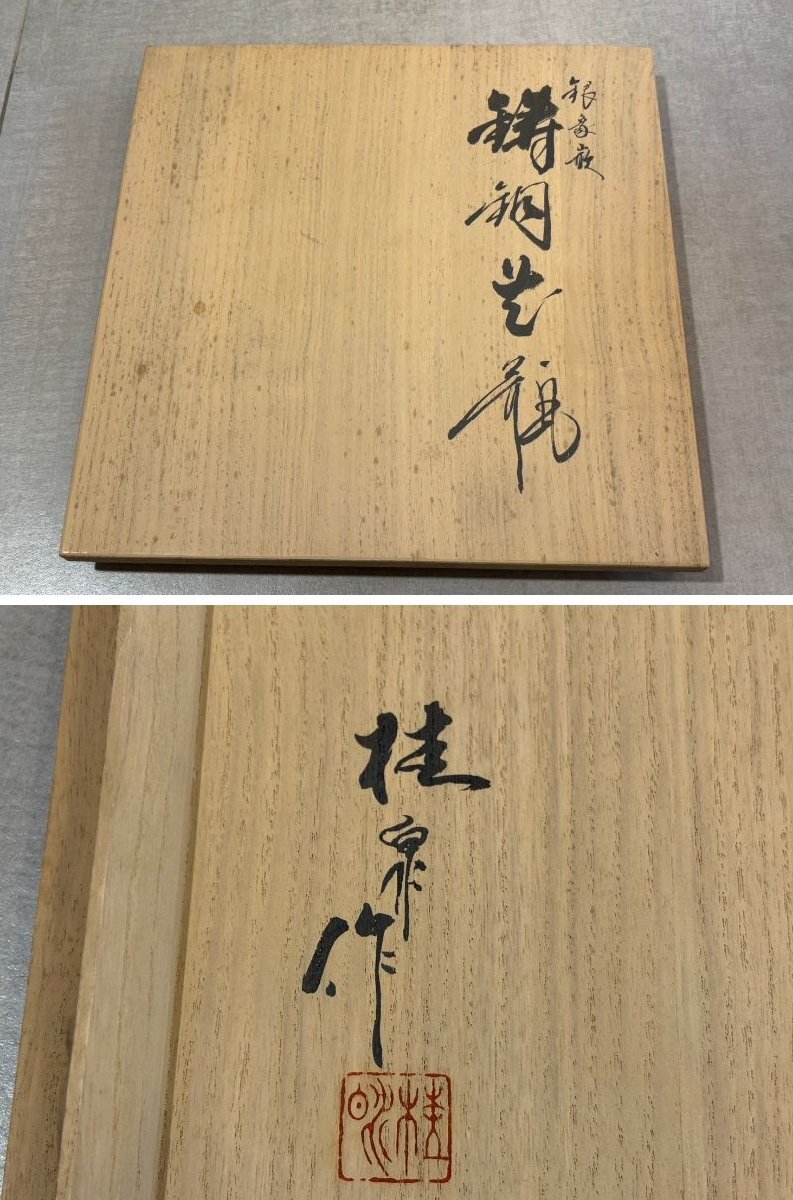 銀象嵌
鋳銅花瓶
桂泉作
桂泉